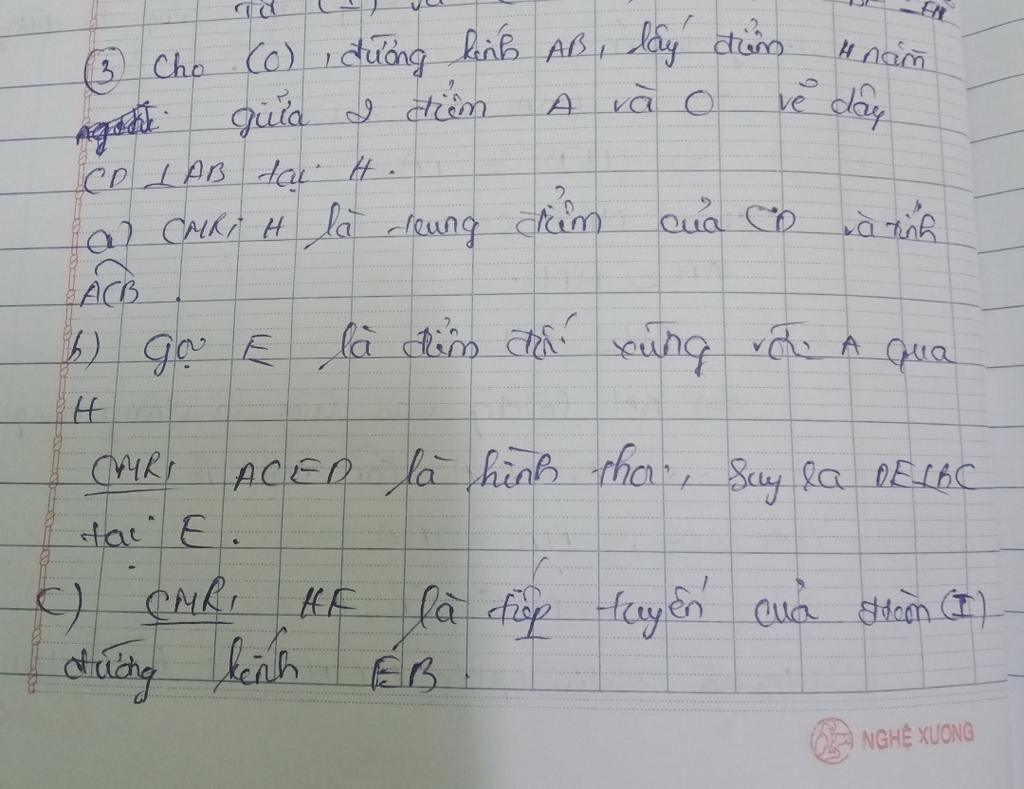 ③ Cho (O), đường kính AB, lấy điểm H nằm
giữa 2 điểm A và O vẽ dây
CD ⊥ AB tại H.
a) CMR: H là trung điểm của CD và tính
ACB.
b) Gọi E là điểm đối xứng với A qua
H
CMR: ACED là hình thoi, suy ra DE⊥BC
tại E.
c) CMR: HF là tiếp tuyến của đtròn (I)
đường kính EB.
NGHỆ XƯƠNG